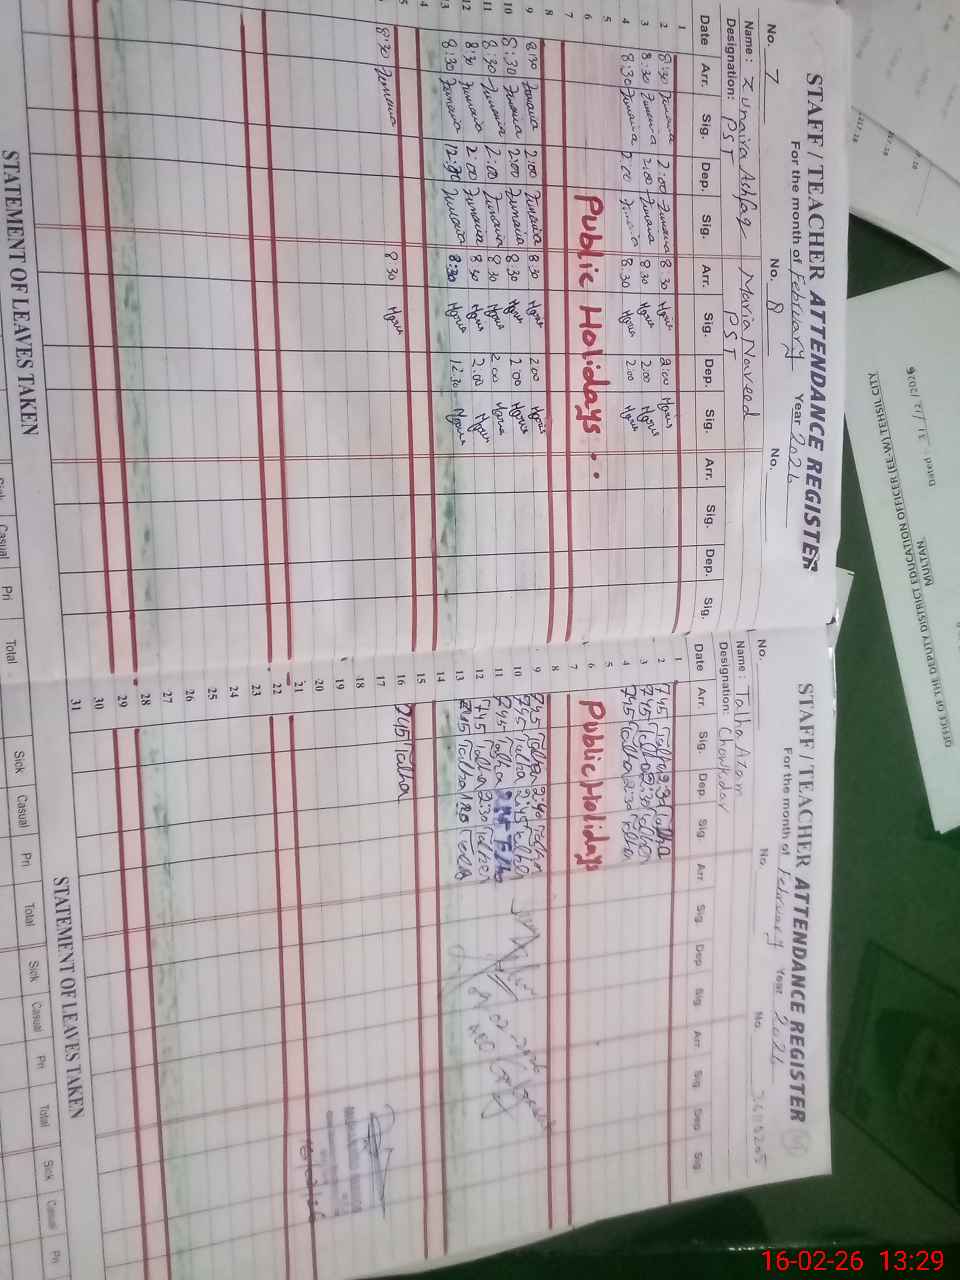 STAFF / TEACHER ATTENDANCE REGISTER
For the month of February Year 2026
No. 7 No. 8 No.
Name: Zunaira Ashfaq Maria Naveed
Designation: PST PST
Date Arr. Sig. Dep. Sig. Arr. Sig. Dep. Sig. Arr. Sig. Dep. Sig.
1
2 8:30 Zunaira 2:00 Zunaira 8:30 Maria 2:00 Maria
3 8:30 Zunaira 2:00 Zunaira 8:30 Maria 2:00 Maria
4 8:30 Zunaira 2:00 Zunaira 8:30 Maria 2:00 Maria
5
6 Public Holidays
7
8
9 8:30 Zunaira 2:00 Zunaira 8:30 Maria 2:00 Maria
10 8:30 Zunaira 2:00 Zunaira 8:30 Maria 2:00 Maria
11 8:30 Zunaira 2:00 Zunaira 8:30 Maria 2:00 Maria
12 8:30 Zunaira 2:00 Zunaira 8:30 Maria 2:00 Maria
13 8:30 Zunaira 12:30 Zunaira 8:30 Maria 12:30 Maria
8:30 Zunaira 8:30 Maria
STATEMENT OF LEAVES TAKEN
Sick Casual Pri Total
STAFF / TEACHER ATTENDANCE REGISTER
For the month of February Year 2026
No. No. No.
Name: Talha Azam
Designation: Chowkidar
Date Arr. Sig. Dep. Sig. Arr Sig. Dep Sig. Arr Sig. Dep Sig
1
2 7:45 Talha 2:30 Talha
3 7:45 Talha 2:30 Talha
4 7:45 Talha 2:30 Talha
5
6 Public Holidays
7
8
9 7:45 Talha 2:40 Talha
10 7:45 Talha 2:45 Talha
11 7:45 Talha 2:45 Talha
12 7:45 Talha 2:30 Talha
13 7:45 Talha
14
15
16 7:45 Talha
17
18
19
20
21
22
23
24
25
26
27
28
29
30
31
STATEMENT OF LEAVES TAKEN
Sick Casual Pri Total Sick Casual Pri Total Sick Casual Pri
OFFICE OF THE DEPUTY DISTRICT EDUCATION OFFICER (EE-W) TEHSIL CITY
MULTAN
Dated
16-02-26 13:29